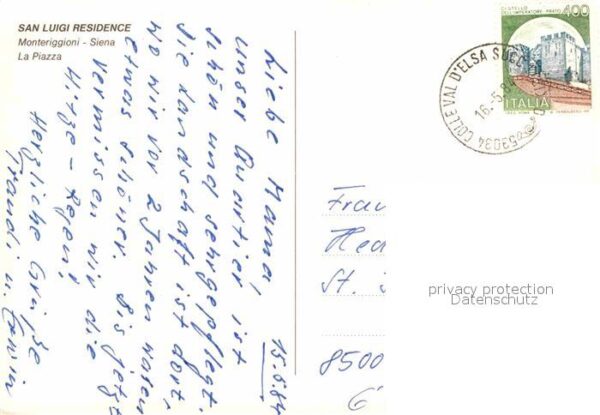 SAN LUIGI RESIDENCE
Monteriggioni - Siena
La Piazza
15.5.84
Liebe Mama,
unser Quartier ist
schön und sehr gepflegt.
die Landschaft ist dort,
wo wir vor 2 Jahren waren
etwas schöner. Bis jetzt
vermissen wir die
Hitze - Regen!
Herzliche Grüße
Traudi u. Erwin
CASTELLO
DELL'IMPERATORE PRATO 400
ITALIA
53034 COLLE VAL D'ELSA SUCC
16.5.8
Frau
Hed
St.
8500
privacy protection
Datenschutz